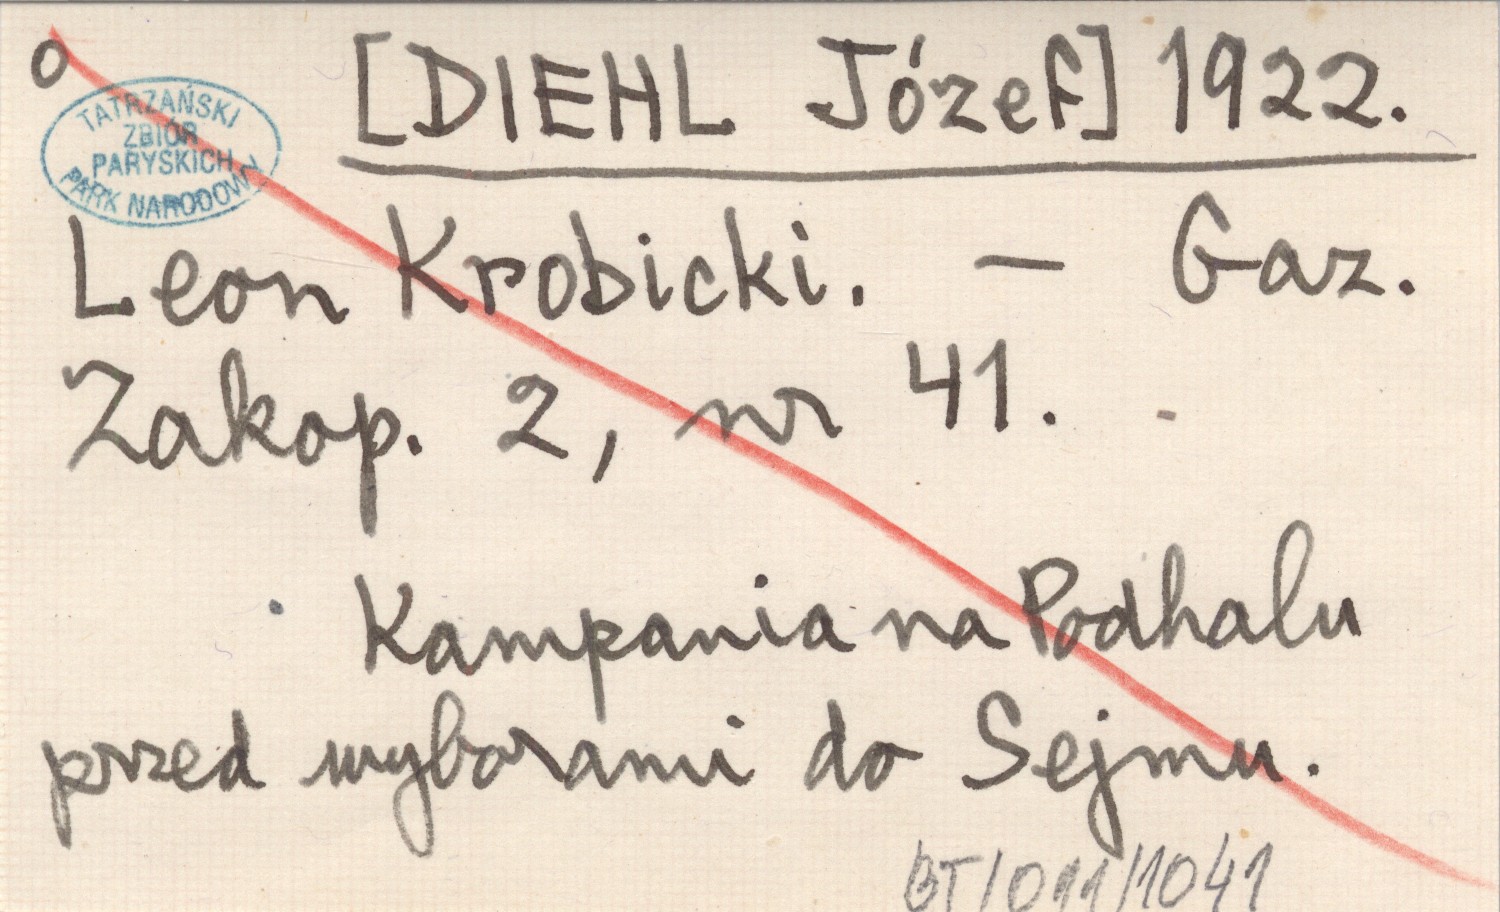 o
[DIEHL Józef] 1922.
TATRZAŃSKI
ZBIÓR
PARYSKICH
PARK NARODOWY
Leon Krobicki. — Gaz.
Zakop. 2, nr 41. -
Kampania na Podhalu
przed wyborami do Sejmu.
BT/011/1041